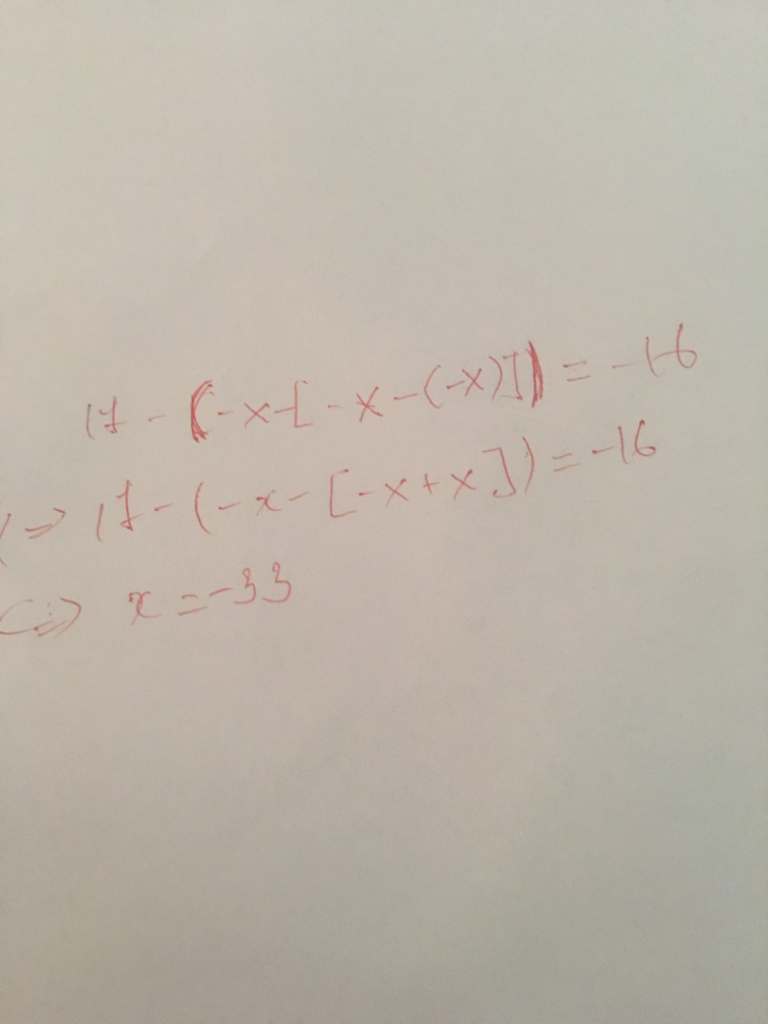 17 - (-x-[-x-(-x)]) = -16
(=> 17 - (-x-[-x+x]) = -16
<=> x = -33